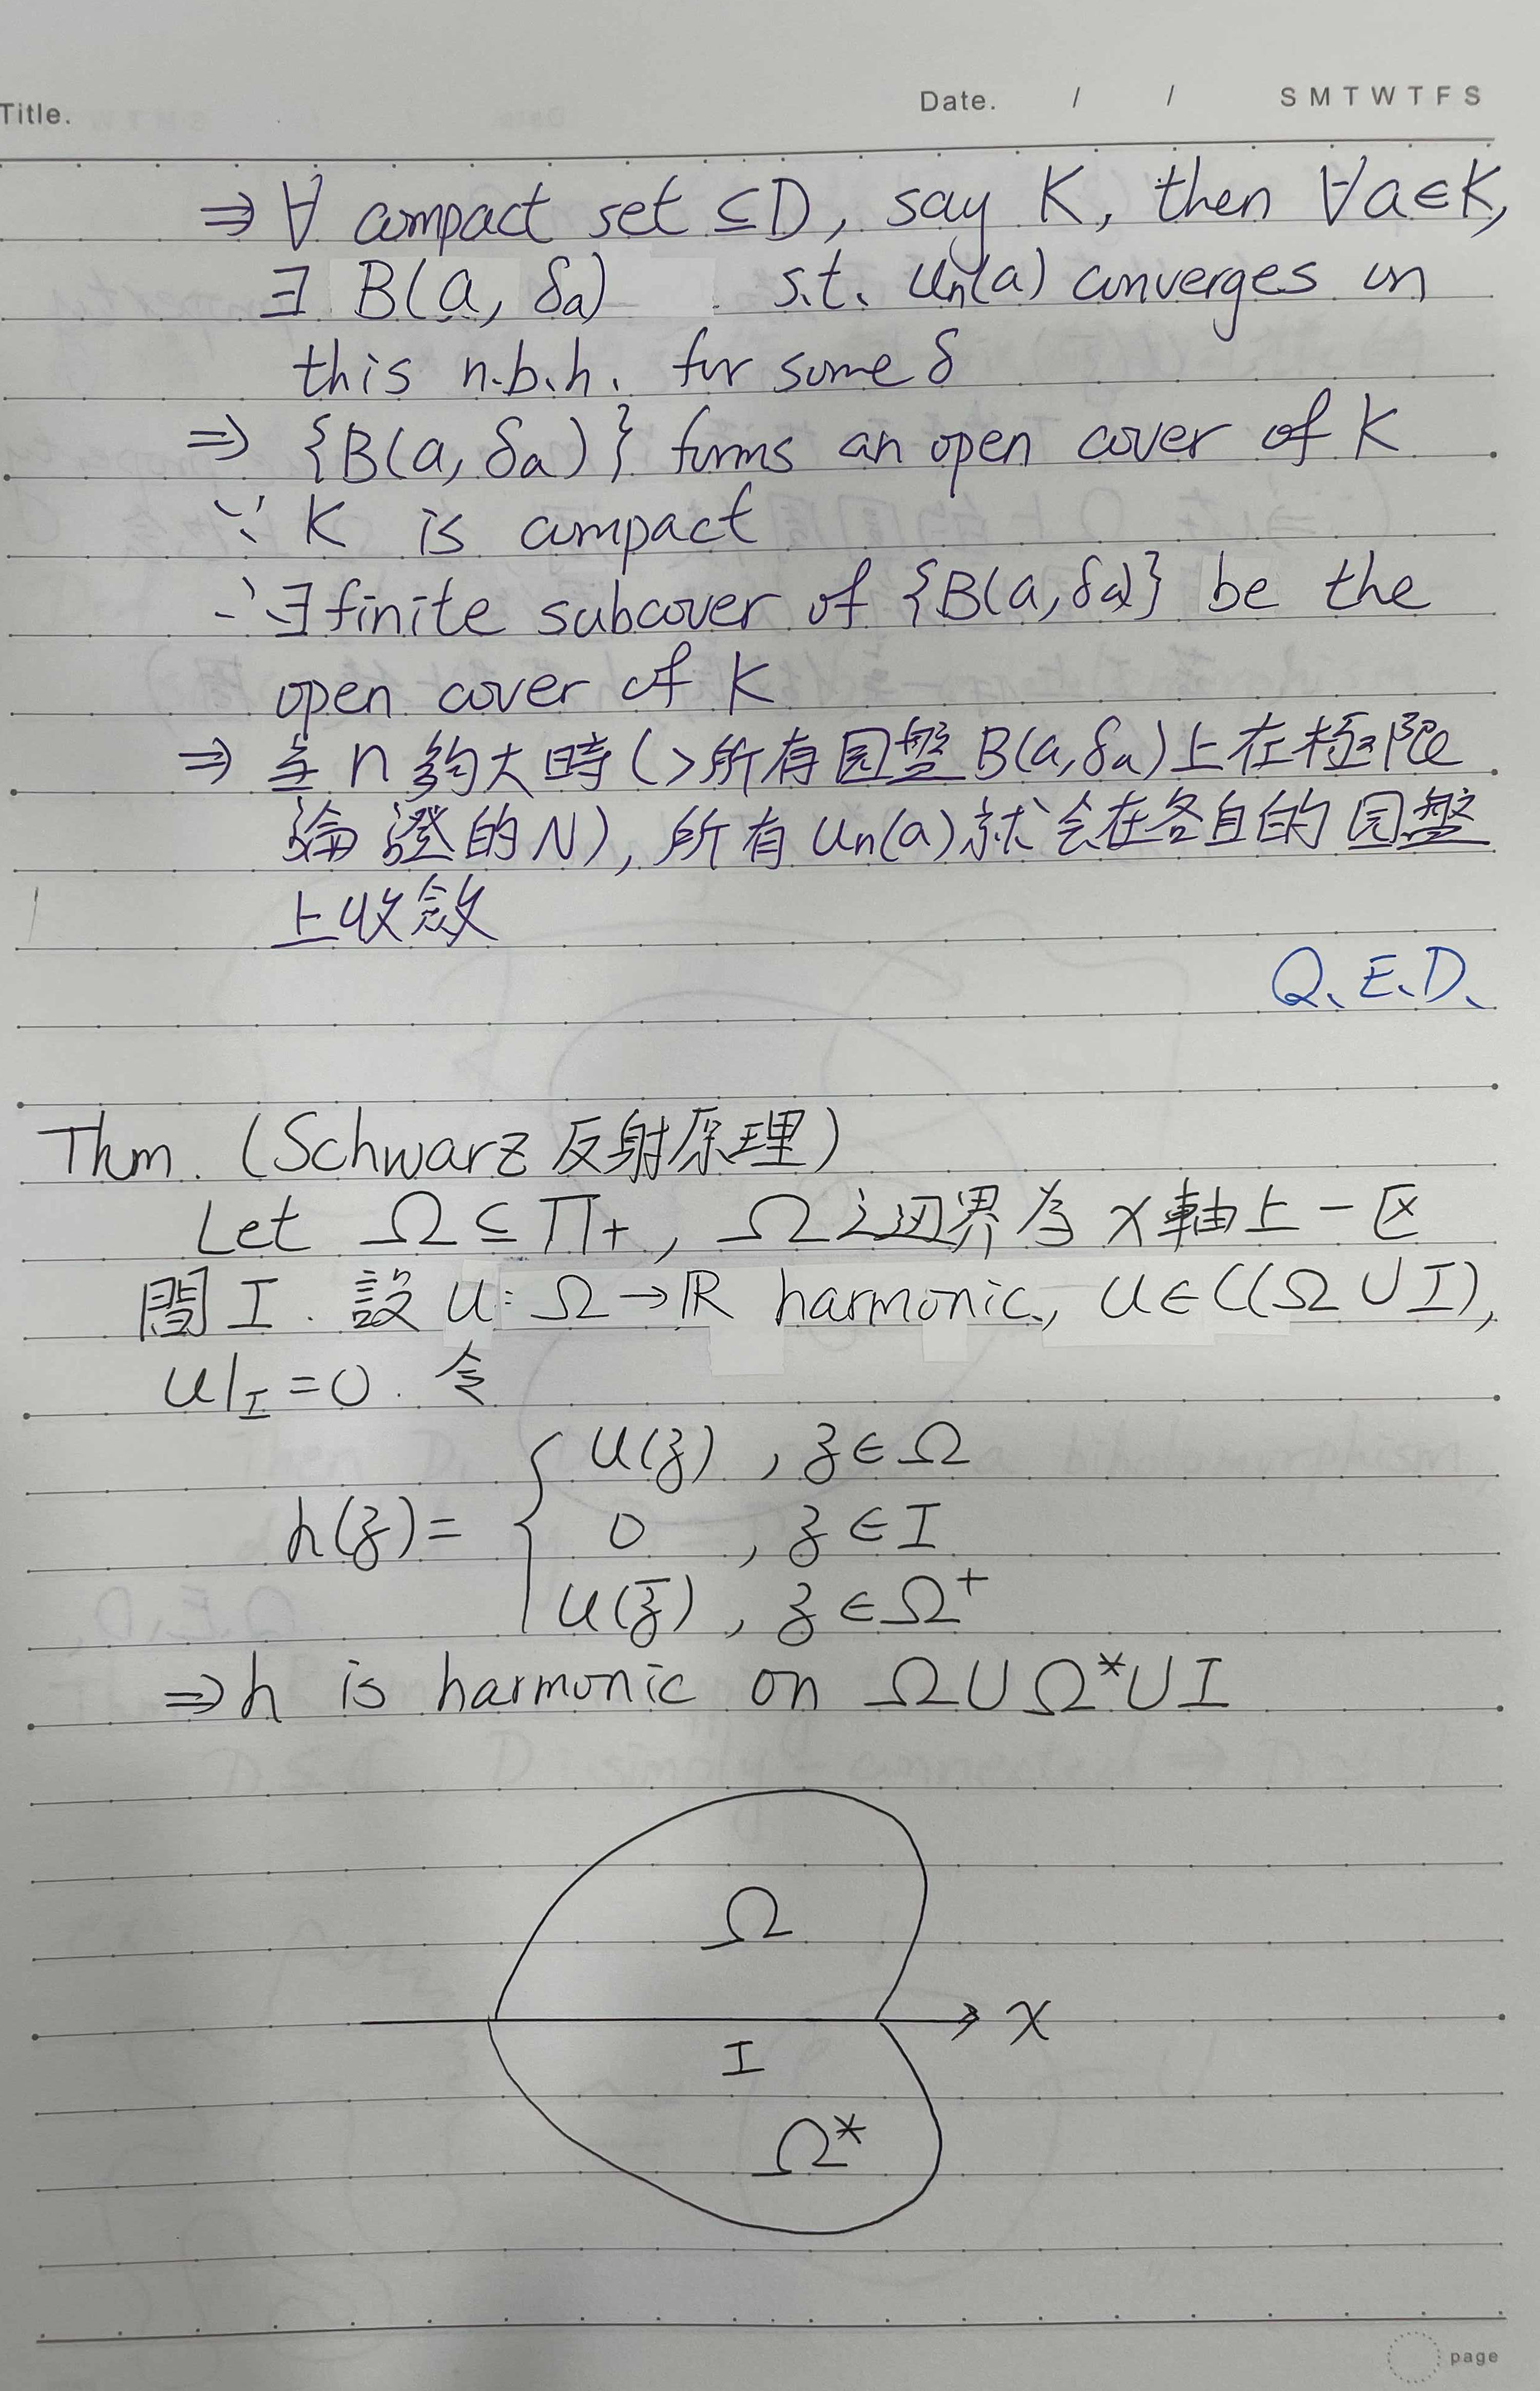 Title.
Date. / / S M T W T F S
⇒ ∀ compact set ⊆D, say K, then ∀a∈K,
∃ B(a, δa) s.t. Un(a) converges in
this n.b.h. for some δ
⇒ {B(a, δa)} forms an open cover of K
∵ K is compact
∴ ∃ finite subcover of {B(a, δa)} be the
open cover of K
⇒ 當 n 夠大時 (>所有园盤 B(a, δa)上在极限
論證的 N), 所有 Un(a) 就会在各自的园盤
上收斂
Q.E.D.
Thm. (Schwarz 反射原理)
Let Ω ⊆ Π+, Ω之边界為 x 軸上一区
間 I. 設 U: Ω → ℝ harmonic, U∈C(Ω∪I),
U|I = 0. 令
U(z), z∈Ω
h(z) = { 0, z∈I
U(z̄), z∈Ω⁺
⇒ h is harmonic on Ω∪Ω*∪I
Ω
x
I
Ω*
page